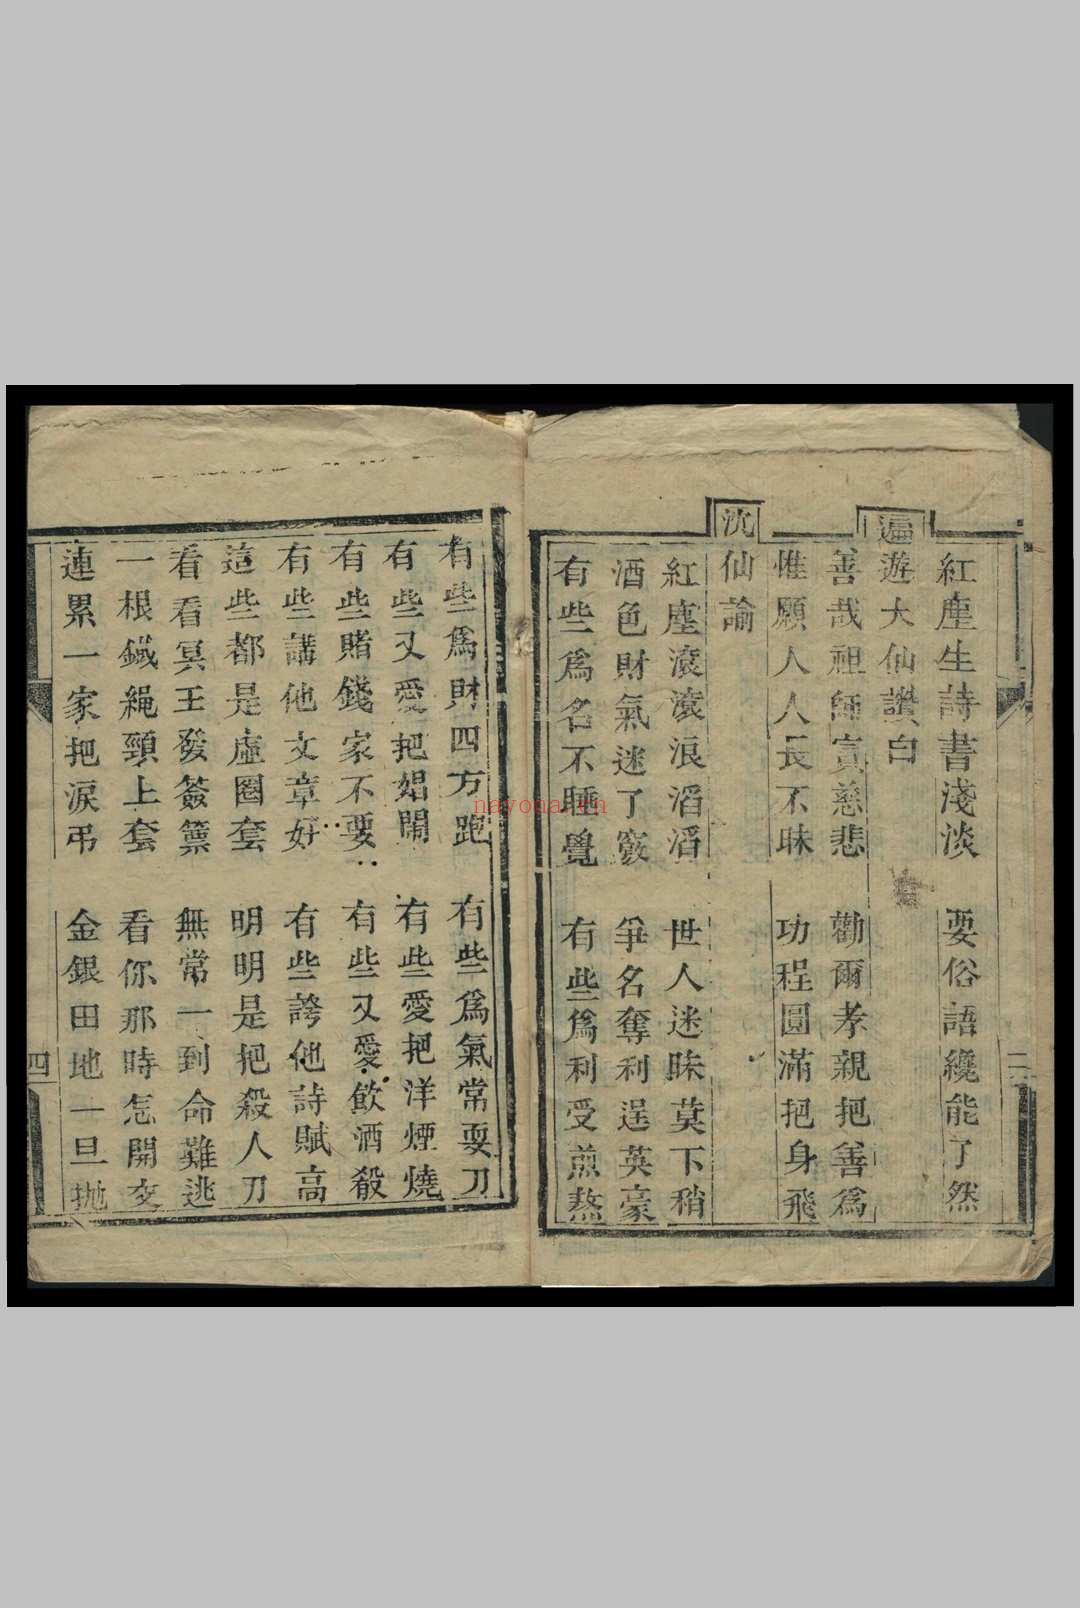 紅塵生詩書淺淡 要俗語纔能了然
遍遊大仙讚白
善哉祖師實慈悲 勸爾孝親把善爲
惟願人人長不昧 功程圓滿把身飛
沈仙諭
紅塵滾滾浪滔滔 世人迷昧莫下稍
酒色財氣迷了竅 爭名奪利逞英豪
有些爲名不睡覺 有些爲利受煎熬
二
有些爲財四方跑 有些爲氣常耍刀
有些又愛把娼鬧 有些愛把洋煙燒
有些賭錢家不要 有些又愛飲酒殽
有些講他文章好 有些誇他詩賦高
這些都是虛圈套 明明是把殺人刀
看看冥王發簽票 無常一到命難逃
一根鐵繩頸上套 看你那時怎開交
連累一家把淚弔 金銀田地一旦拋
四
nayona.cn